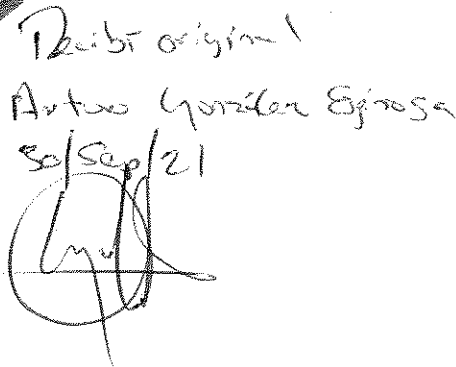 Recibí original
Arturo González Espinosa
30/Sep/21